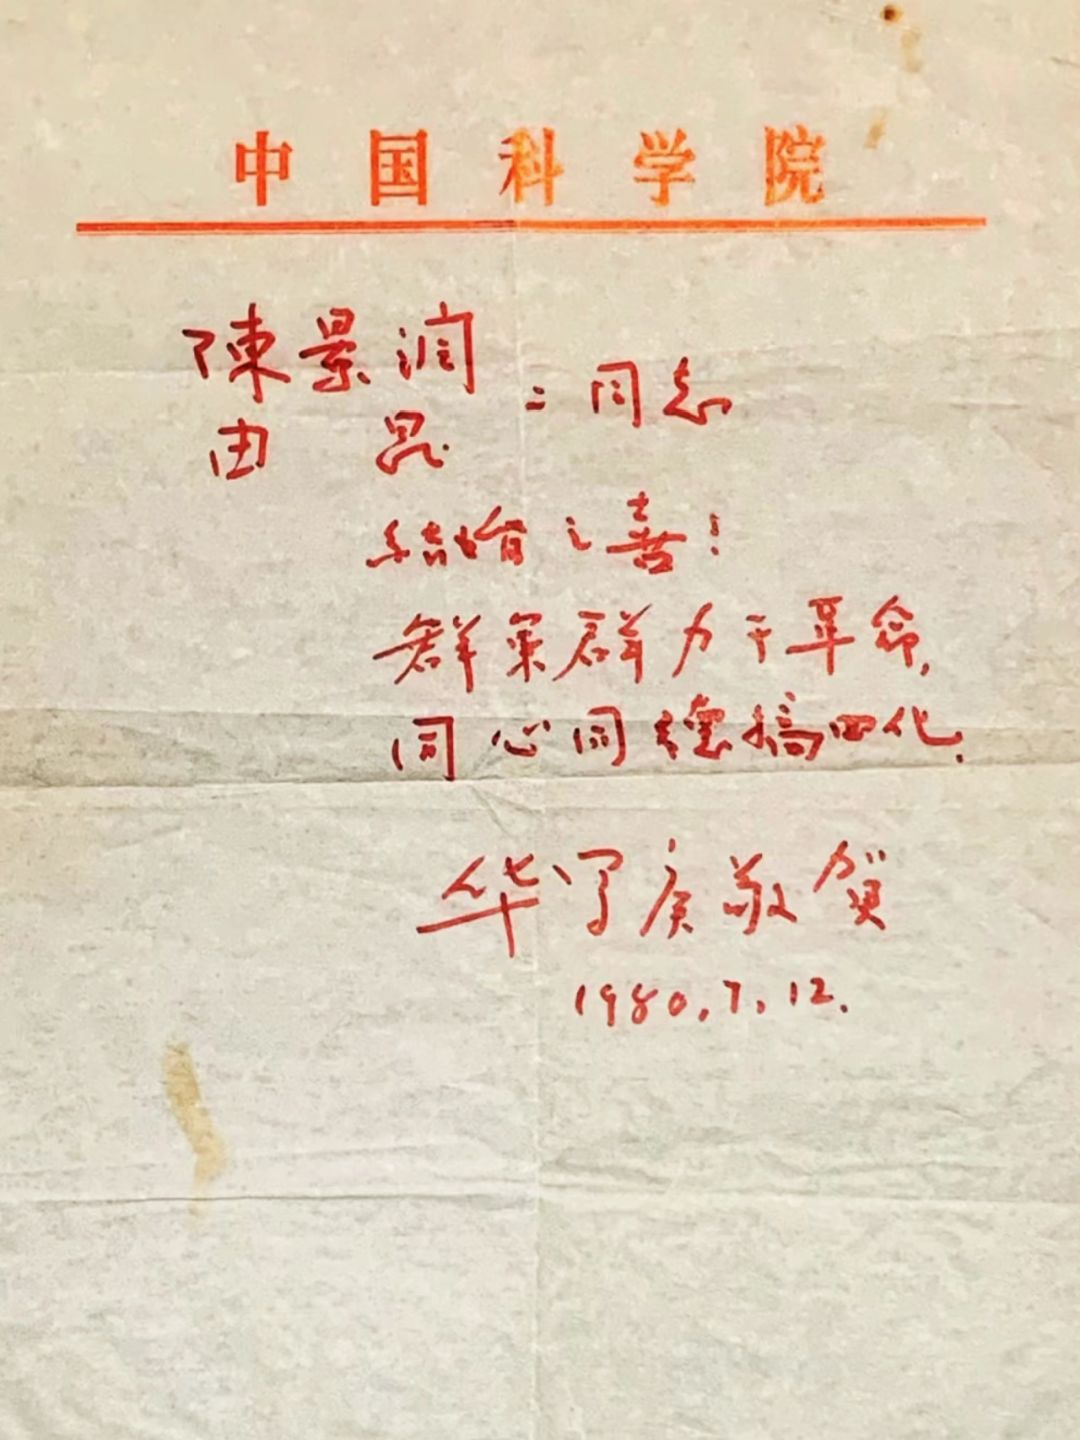 中国科学院
陳景润
由 昆
二同志
结婚之喜!
群策群力干革命,
同心同德搞四化.
华罗庚敬贺
1980.7.12.